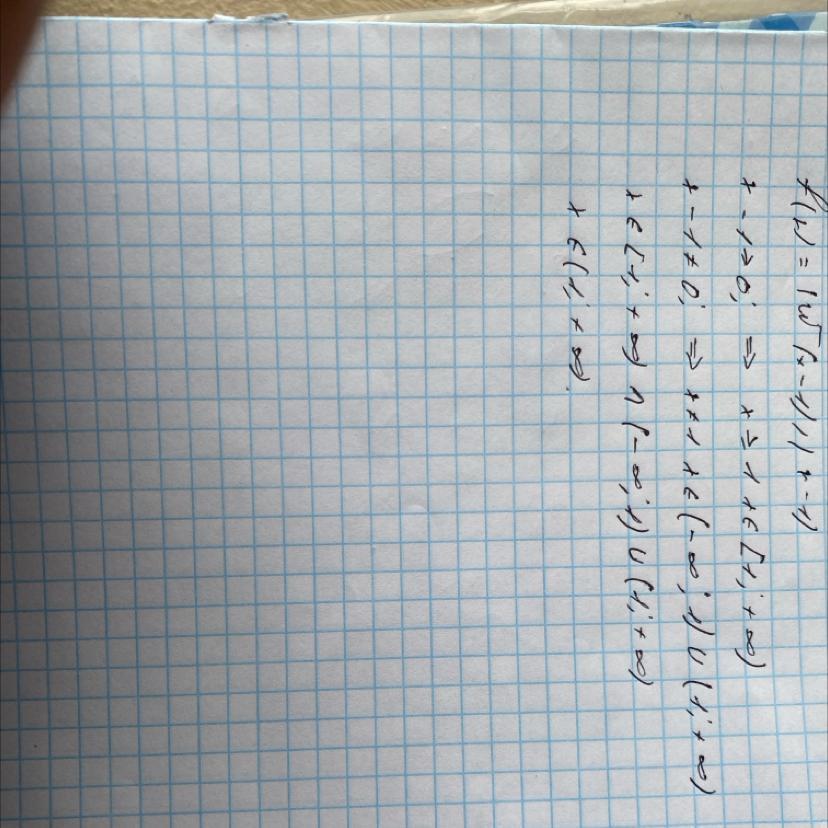 f(x) = (√(x-1))/(x-1)
x-1≥0; ⇒ x≥1 x∈[1; +∞)
x-1≠0; ⇒ x≠1 x∈(-∞; 1)∪(1; +∞)
x∈[1; +∞) ∩ (-∞; 1)∪(1; +∞)
x∈(1; +∞).